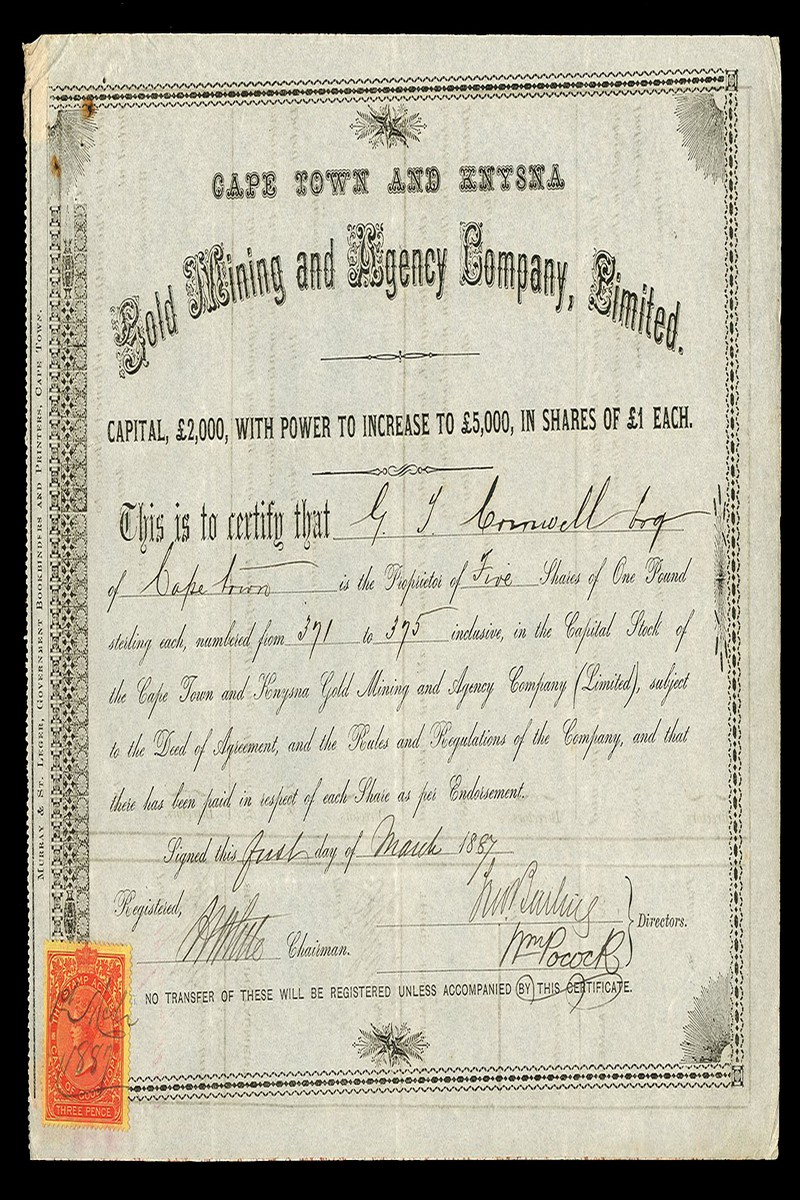 CAPE TOWN AND KNYSNA
Gold Mining and Agency Company, Limited.
CAPITAL, £2,000, WITH POWER TO INCREASE TO £5,000, IN SHARES OF £1 EACH.
This is to certify that G. T. Cornwell Esq
of Cape town is the Proprietor of Five Shares of One Pound
sterling each, numbered from 371 to 375 inclusive, in the Capital Stock of
the Cape Town and Knysna Gold Mining and Agency Company (Limited), subject
to the Deed of Agreement, and the Rules and Regulations of the Company, and that
there has been paid in respect of each Share as per Endorsement.
Signed this first day of March 1887
Registered,
Chairman.
Wm Pocock
Directors.
NO TRANSFER OF THESE WILL BE REGISTERED UNLESS ACCOMPANIED BY THIS CERTIFICATE.
MURRAY & ST. LEGER, GOVERNMENT BOOKBINDERS AND PRINTERS, CAPE TOWN.
STAMP ACT
1887
CAPE OF GOOD HOPE
THREE PENCE